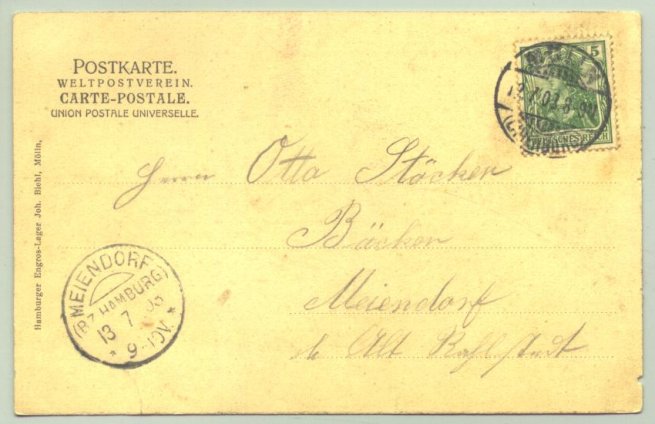 POSTKARTE.
WELTPOSTVEREIN.
CARTE-POSTALE.
UNION POSTALE UNIVERSELLE.
5
Herrn Otto Stöcken
Bäcker
Meiendorf
Alt Rahlstedt
MEIENDORF
(BZ. HAMBURG)
13 7 03
* 9-10V. *
Hamburger Engros-Lager Joh. Biehl, Mölln,